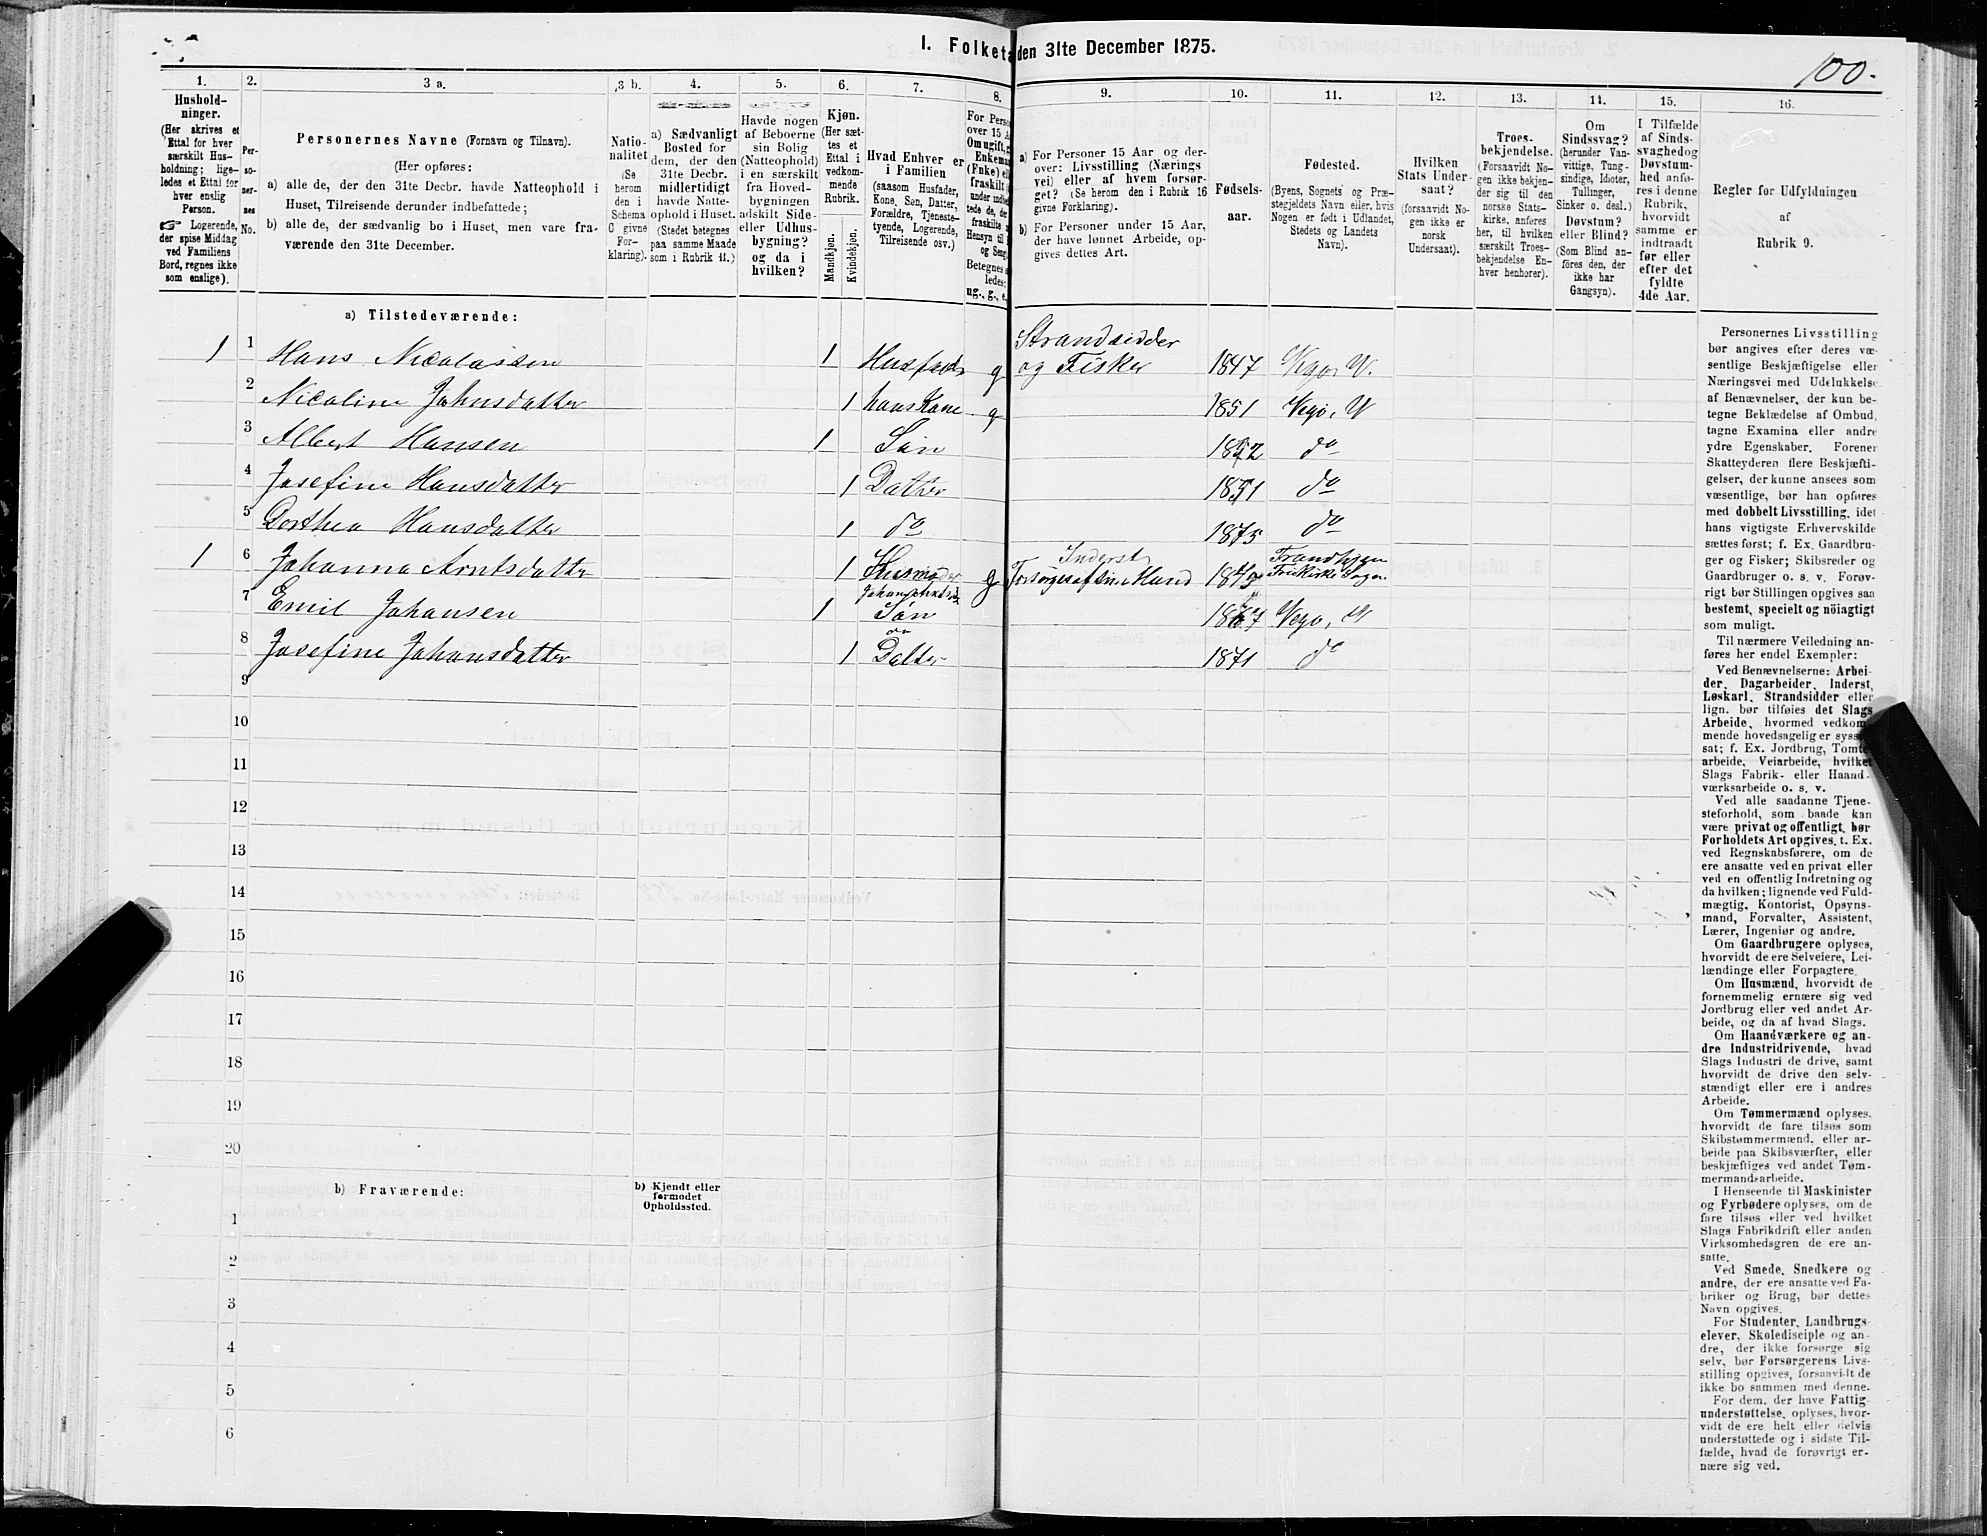 I. Folketa den 31te December 1875.
100.
1.
2.
3 a.
3 b.
4.
5.
6.
7.
8.
9.
10.
11.
12.
13.
14.
15.
16.
Hushold-
ninger.
(Her skrives et
Ettal for hver
særskilt Hus-
holdning; lige-
ledes et Ettal for
hver enslig
Person.
Logerende,
der spise Middag
ved Familiens
Bord, regnes ikke
som enslige).
Per-
so-
ner-
nes
No.
Personernes Navne (Fornavn og Tilnavn).
(Her opføres:
a) alle de, der den 31te Decbr. havde Natteophold i
Huset, Tilreisende derunder indbefattede;
b) alle de, der sædvanlig bo i Huset, men vare fra-
værende den 31te December.
Natio-
nalitet
(Se
herom
den i
Schema
C givne
For-
klaring).
a) Sædvanligt
Bosted for
dem, der den
31te Decbr.
midlertidigt
havde Natte-
ophold i Huset.
(Stedet betegnes
paa samme Maade
som i Rubrik 11.)
Havde nogen
af Beboerne
sin Bolig
(Natteophold)
i en særskilt
fra Hoved-
bygningen
adskilt Side-
eller Udhus-
bygning?
og da i
hvilken?
Kjøn.
(Her sæt-
tes et
Ettal i
vedkom-
mende
Rubrik.
Mandkjøn.
Kvindekjøn.
Hvad Enhver er
i Familien
(saasom Husfader,
Kone, Søn, Datter,
Forældre, Tjeneste-
tyende, Logerende,
Tilreisende osv.)
For Perso
over 15 A
Om ugift, g
Enkema
(Fnke) el
fraskilt
under indbe
tede de, de
fraskilte
Hensyn til
og Seng
Betegnes s
ledes:
ug., g., e.
a) For Personer 15 Aar og der-
over: Livsstilling (Nærings
vei) eller af hvem forsør-
get? (Se herom den i Rubrik 16
givne Forklaring).
b) For Personer under 15 Aar,
der have lønnet Arbeide, op-
gives dettes Art.
Fødsels-
aar.
Fødested.
(Byens, Sognets og Præ-
stegjeldets Navn eller, hvis
Nogen er født i Udlandet,
Stedets og Landets
Navn).
Hvilken
Stats Under-
saat?
(forsaavidt No-
gen ikke er
norsk
Undersaat).
Troes-
bekjendelse.
(Forsaavidt No-
gen ikke bekjen-
der sig til den
norske Stats-
kirke, anføres
her, til hvilken
særskilt Troes-
bekjendelse En-
hver henhører).
Om
Sindssvag?
(herunder Van-
vittige, Tung-
sindige, Idioter,
Tullinger,
Sinker o. desl.)
Døvstum?
eller Blind?
(Som Blind an-
føres den, der
ikke har
Gangsyn).
I Tilfælde
af Sinds-
svaghed og
Døvstum-
hed anfø-
res i denne
Rubrik,
hvorvidt
samme er
indtraadt
før eller
efter det
fyldte
4de Aar.
Regler for Udfyldningen
af
Rubrik 9.
a) Tilstedeværende:
Strandsidder
1 1 Hans Nicolaisen 1 Husfader g og Fisker 1847 Vegø, N.
2 Nicoline Johnsdatter 1 hans Kone g 1851 Vegø, N
3 Albert Hansen 1 Søn 1872 do
4 Josefine Hansdatter 1 Datter 1871 do
5 Dorthea Hansdatter 1 do 1875 do
Inderst
1 6 Johanna Arntsdatter 1 Husmoder g Forsørges af sin Mand
7 Emil Johansen 1 Søn 1867 Vegø, N
8 Josefine Johansdatter 1 Datter 1871 do
9
10
11
12
13
14
15
16
17
18
19
20
b) Fraværende:
b) Kjendt eller
formodet
Opholdssted.
1
2
3
4
5
6
Personernes Livsstilling
bør angives efter deres væ-
sentlige Beskjæftigelse eller
Næringsvei med Udelukkelse
af Benævnelser, der kun be-
tegne Beklædelse af Ombud,
tagne Examina eller andre
ydre Egenskaber. Forener
Skatteyderen flere Beskjæfti-
gelser, der kunne ansees som
væsentlige, bør han opføres
med dobbelt Livsstilling, idet
hans vigtigste Erhvervskilde
sættes først; f. Ex. Gaardbru-
ger og Fisker; Skibsreder og
Gaardbruger o. s. v. Forøv-
rigt bør Stillingen opgives saa
bestemt, specielt og nöiagtigt
som muligt.
Til nærmere Veiledning an-
føres her endel Exempler:
Ved Benævnelserne: Arbei-
der, Dagarbeider, Inderst,
Løskarl, Strandsidder eller
lign. bør tilføies det Slags
Arbeide, hvormed vedkom-
mende hovedsagelig er syssel-
sat; f. Ex. Jordbrug, Tomte-
arbeide, Veiarbeide, hvilket
Slags Fabrik- eller Haand-
værksarbeide o. s. v.
Ved alle saadanne Tjene-
steforhold, som baade kan
være privat og offentligt, bør
Forholdets Art opgives, t. Ex.
ved Regnskabsførere, om de
ere ansatte ved en privat eller
ved en offentlig Indretning og
da hvilken; lignende ved Fuld-
mægtig, Kontorist, Opsyns-
mand, Forvalter, Assistent,
Lærer, Ingeniør og andre.
Om Gaardbrugere oplyses,
hvorvidt de ere Selveiere, Lei-
lændinge eller Forpagtere.
Om Husmænd, hvorvidt de
fornemmelig ernære sig ved
Jordbrug eller ved andet Ar-
beide, og da af hvad Slags.
Om Haandværkere og an-
dre Industridrivende, hvad
Slags Industri de drive, samt
hvorvidt de drive den selv-
stændigt eller ere i andres
Arbeide.
Om Tømmermænd oplyses,
hvorvidt de fare tilsøs som
Skibstømmermænd, eller ar-
beide paa Skibsværfter, eller
beskjæftiges ved andet Tøm-
mermandsarbeide.
I Henseende til Maskinister
og Fyrbødere oplyses, om de
fare tilsøs eller ved hvilket
Slags Fabrikdrift eller anden
Virksomhedsgren de ere an-
satte.
Ved Smede, Snedkere og
andre, der ere ansatte ved Fa-
briker og Brug, bør dettes
Navn opgives.
For Studenter, Landbrugs-
elever, Skoledisciple og an-
dre, der ikke forsørge sig
selv, bør Forsørgerens Livs-
stilling opgives, forsaavidt de
ikke bo sammen med denne.
For dem, der have Fattig-
understøttelse, oplyses, hvor-
vidt de ere helt eller delvis
understøttede og i sidste Til-
fælde, hvad de forøvrigt er-
nære sig ved.